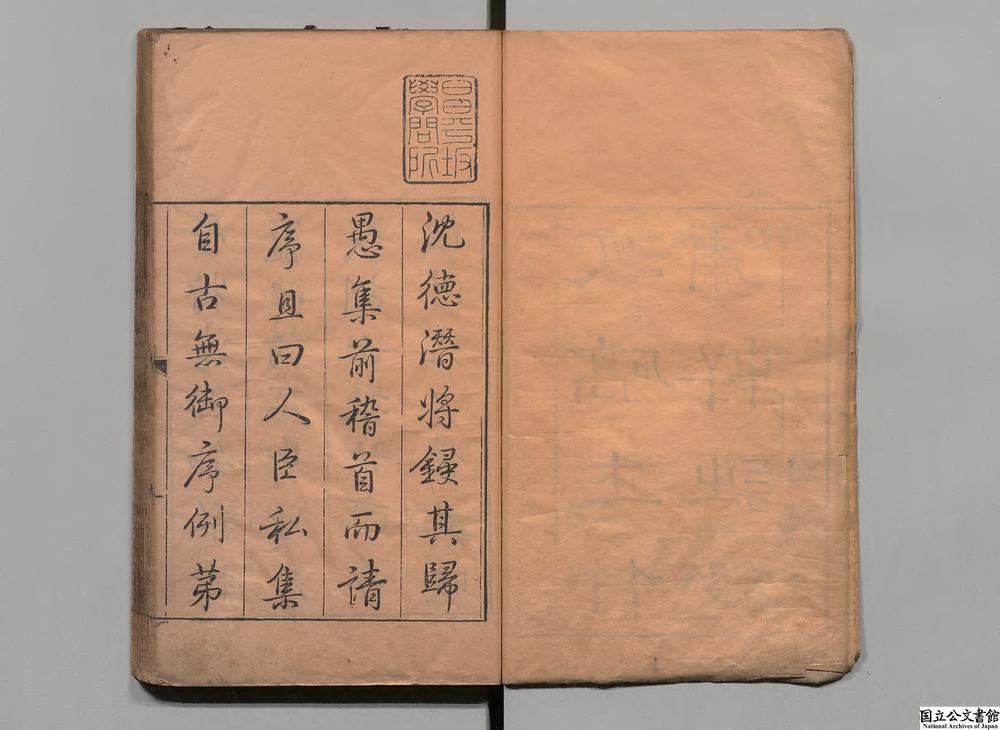 昌平坂
學問所
沈德潛將鋟其歸
愚集前稽首而請
序且曰人臣私集
自古無御序例第
国立公文書館
National Archives of Japan